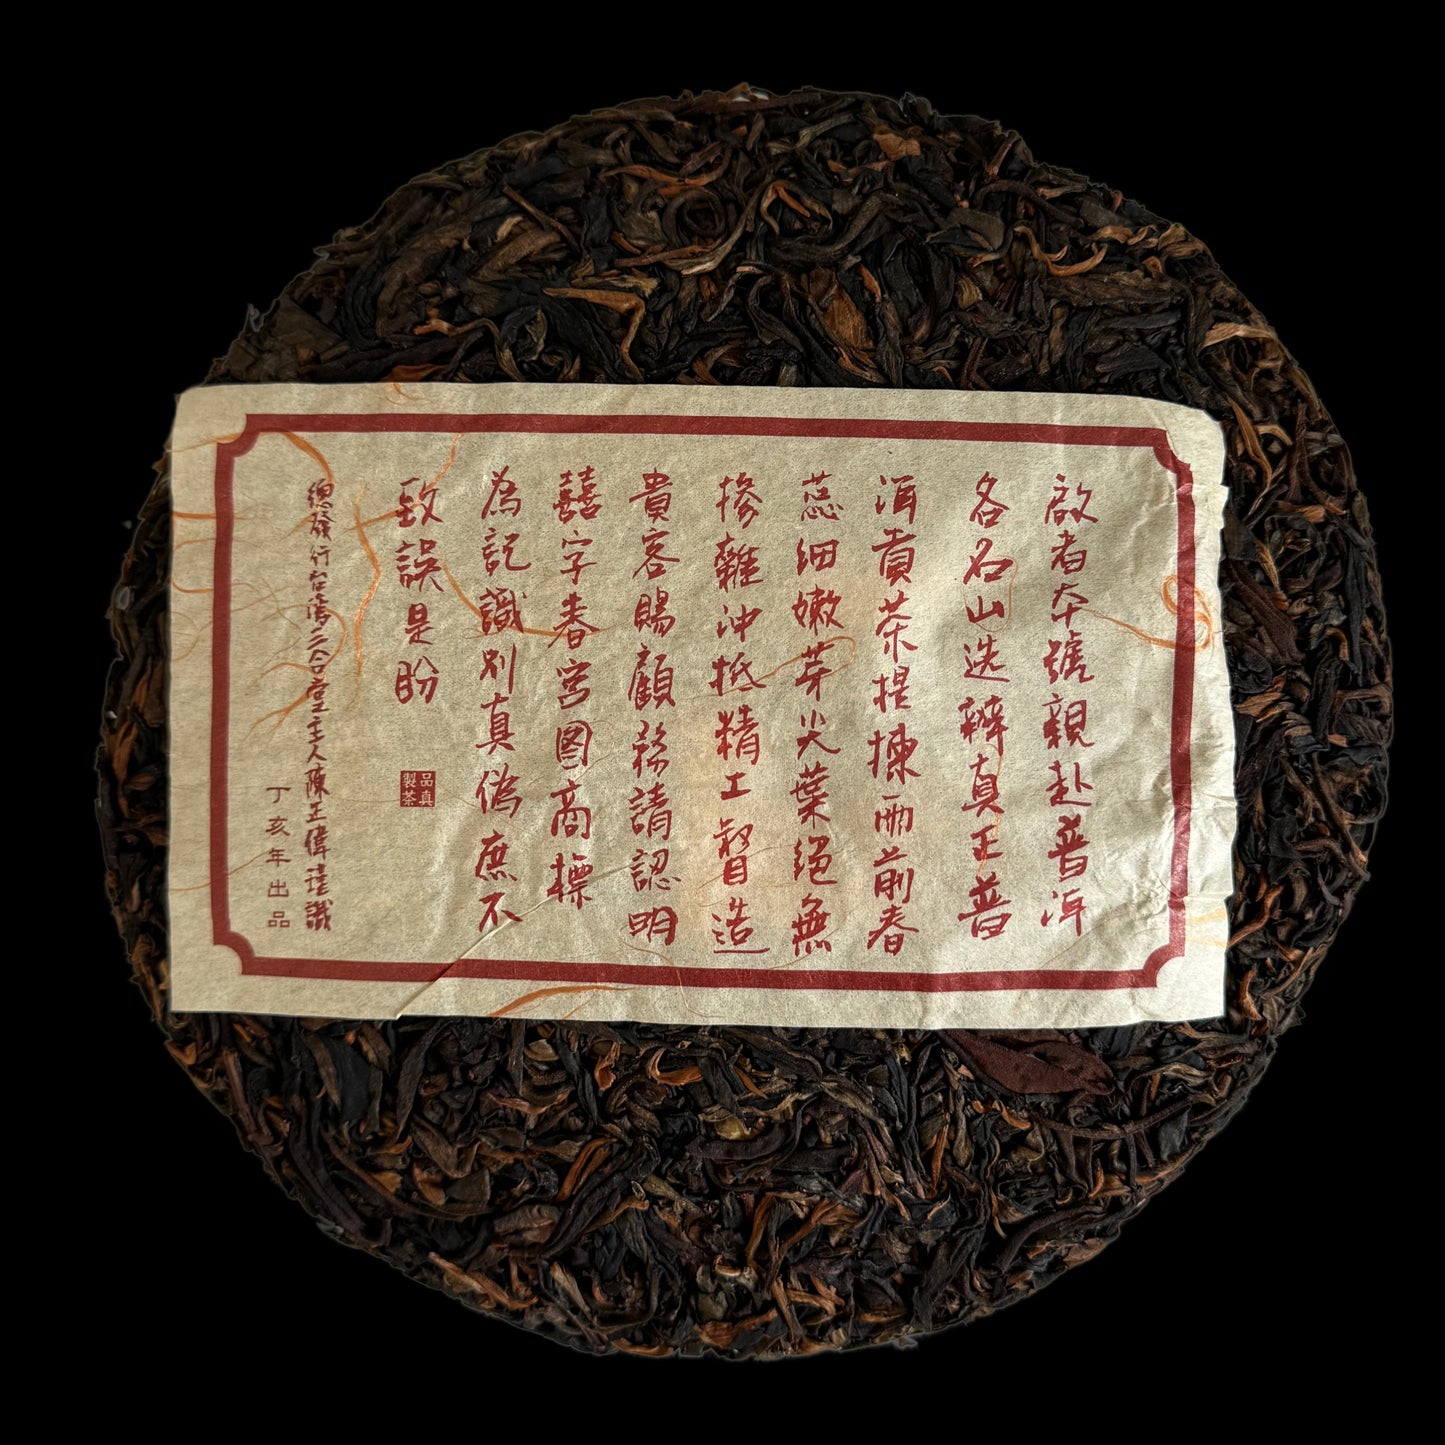 啟者本號親赴普洱
各名山选辨真正普
洱貢茶提揀雨前春
蕊细嫩芽尖葉絕無
摻雜沖抵精工督造
貴客賜顧務請認明
囍字春宫图商標
為記識别真偽庶不
致誤是盼
品真
製茶
總發行台灣三合堂主人陳正偉謹識
丁亥年出品